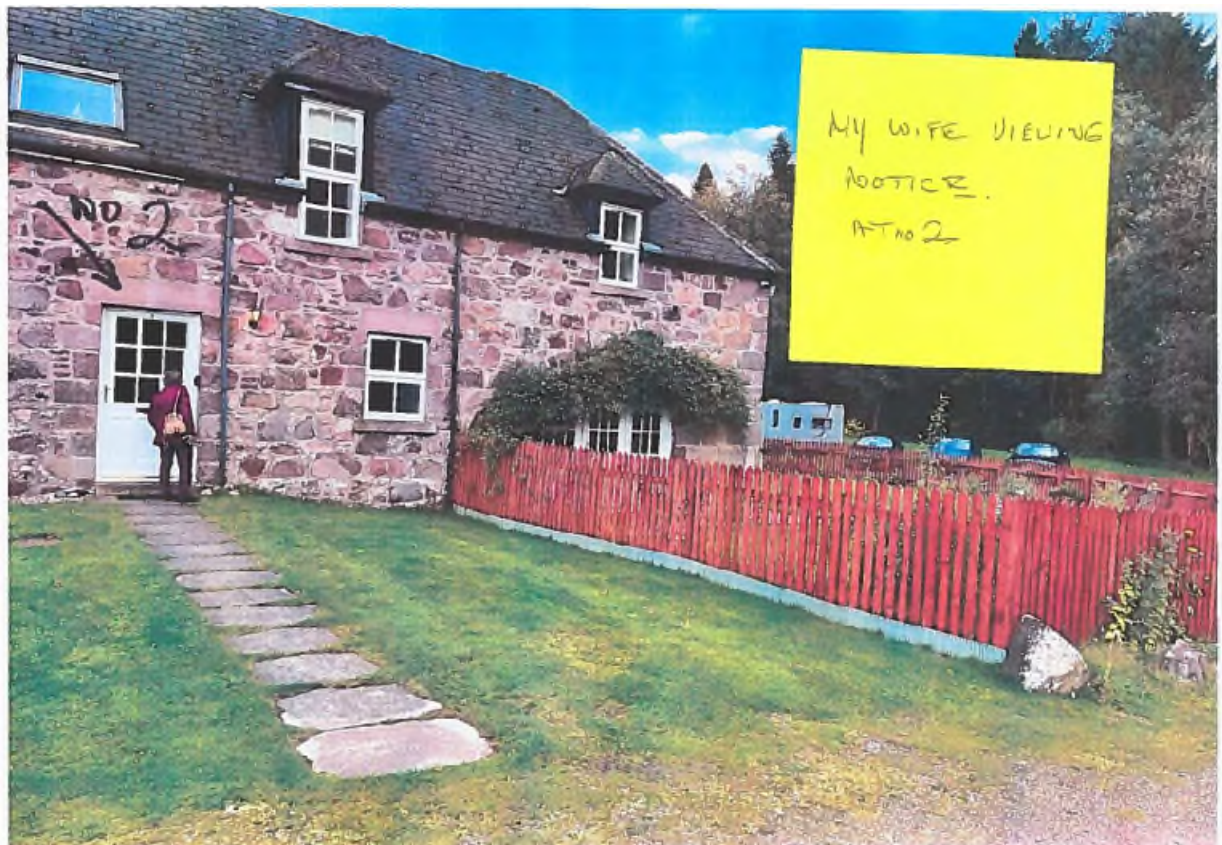 NO. 2
MY WIFE VIEWING
NOTICE.
AT NO 2